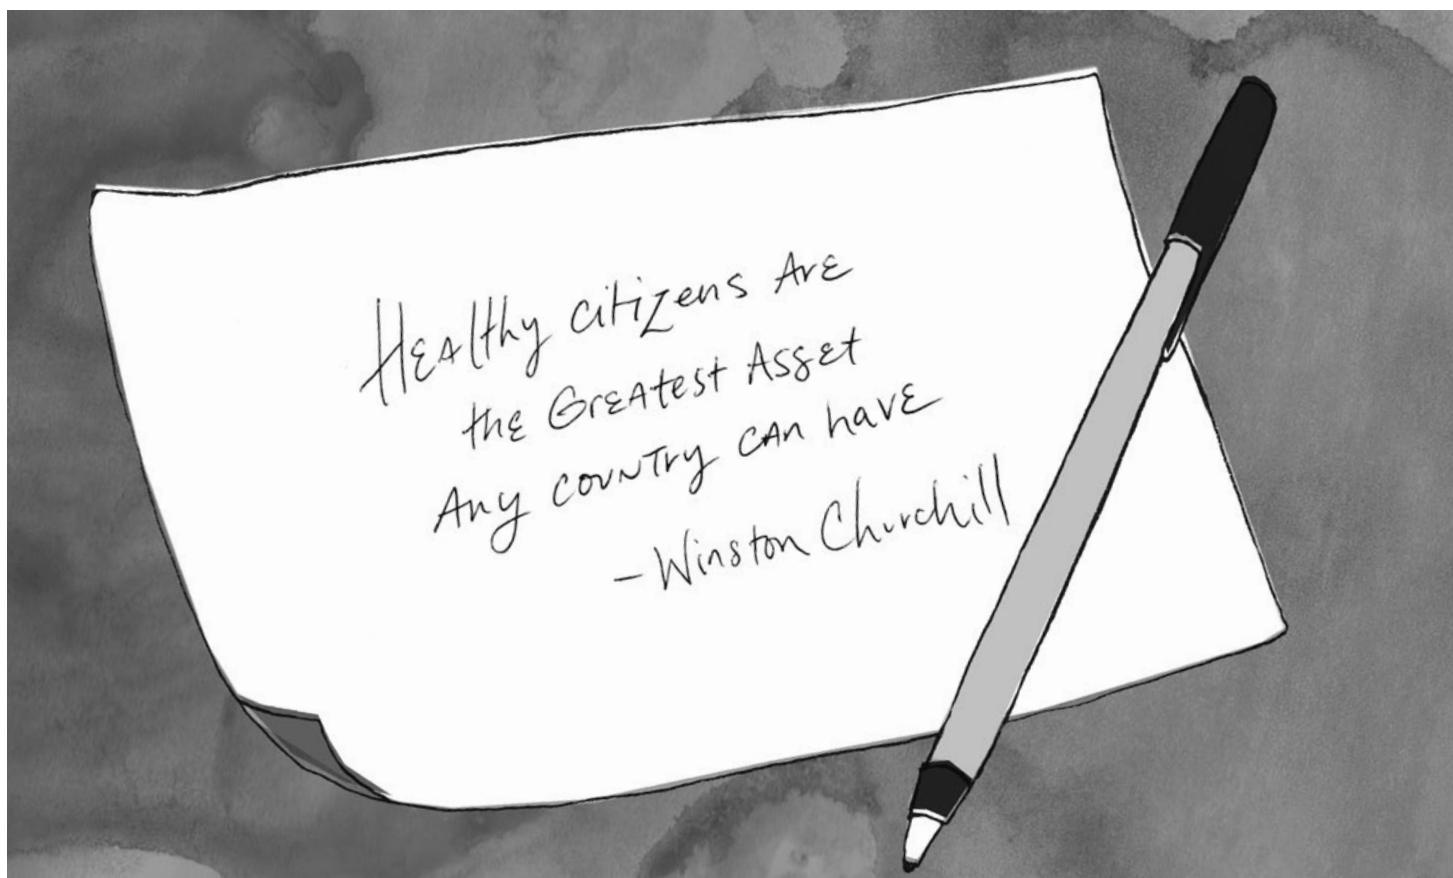 Healthy citizens Are
the Greatest Asset
Any country can have
- Winston Churchill